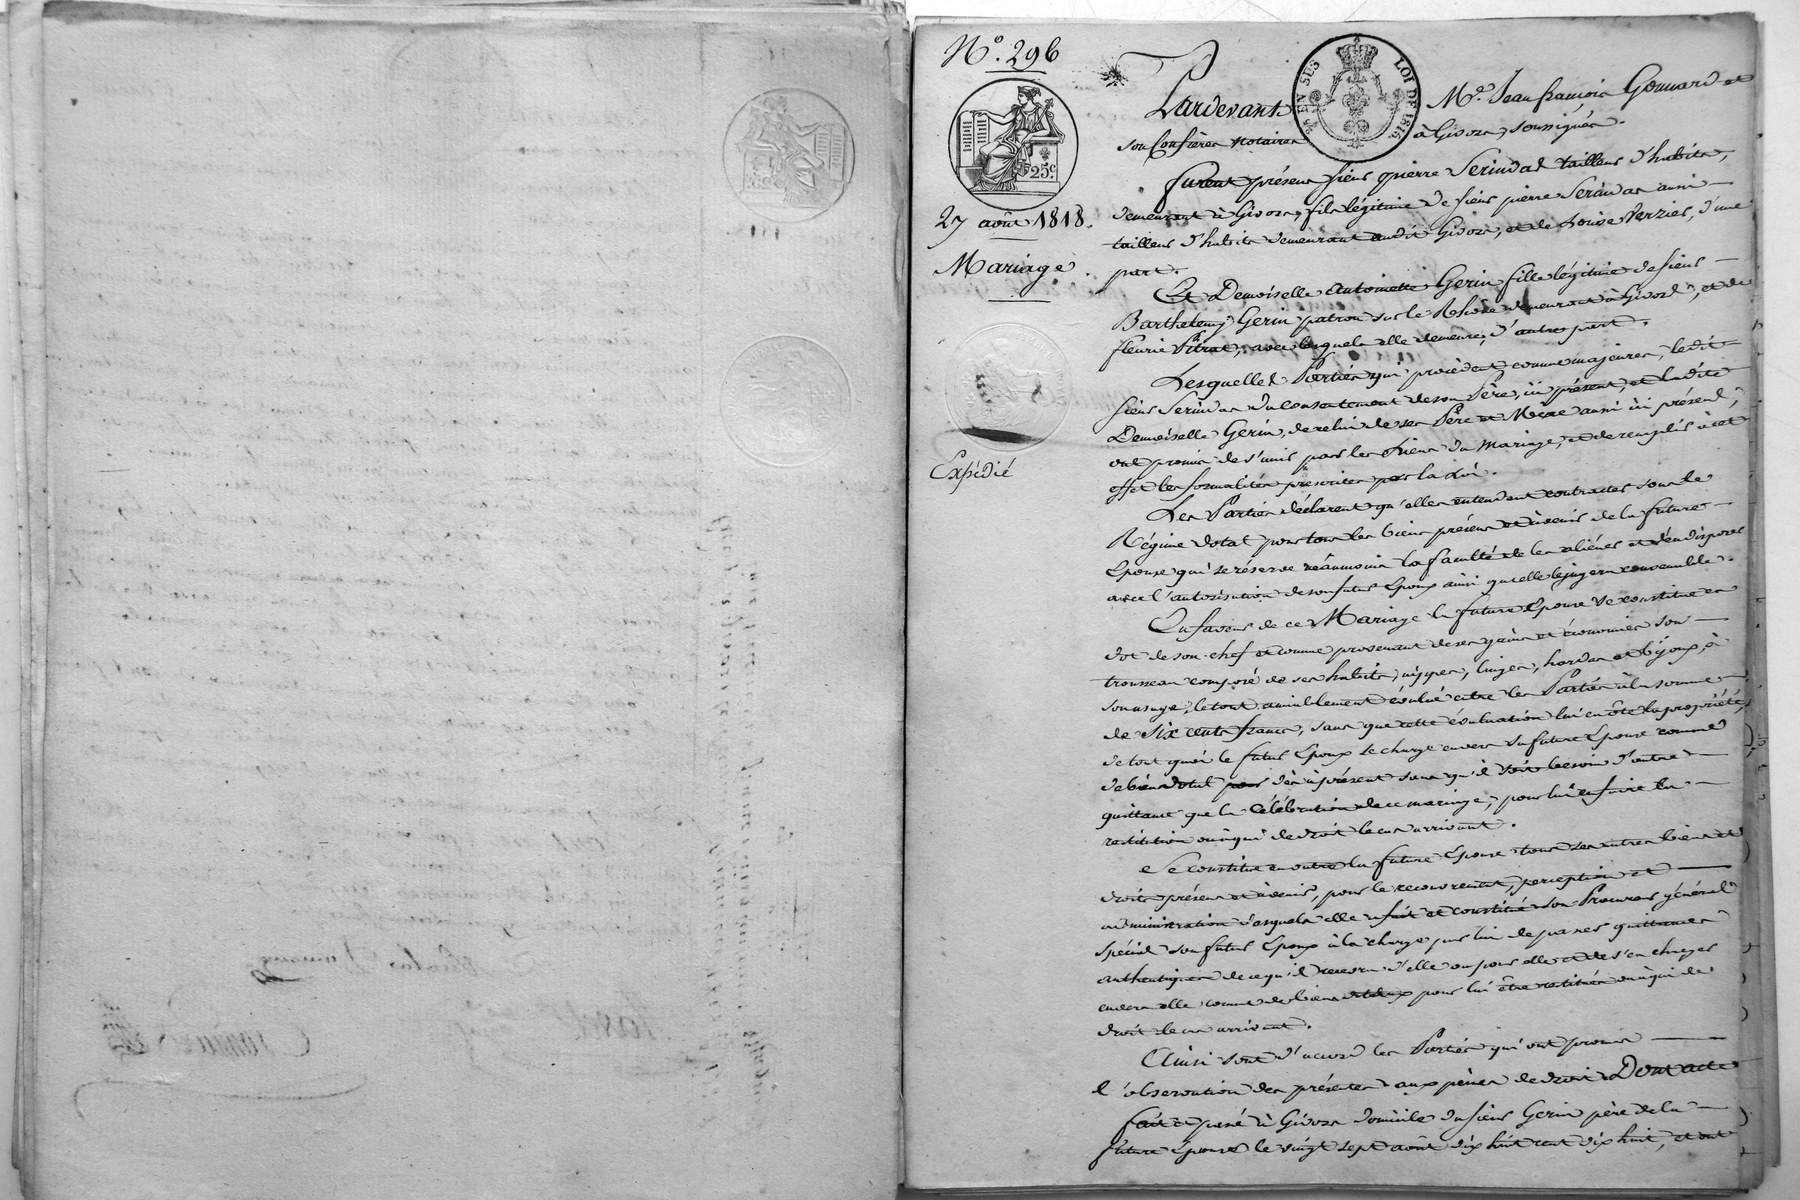 N.° 296
25c
27 août 1818.
Mariage.
Expédié
LOI DE 1816
Pardevant M.e Jean françois Gonnard et
son Confrère notaires à Givors, soussignés.
furent présens sieur pierre Serindat tailleur d'habits,
demeurant à Givors, fils légitime de sieur pierre Serindat aussi
tailleur d'habits demeurant audit Givors, et de Louise Verzier, d'une
part.
Et Demoiselle Antoinette Gerin fille légitime de sieur
Barthelemy Gerin patron sur le Rhône demeurant à Givors, et de
fleurie Pitrat, avec lesquels elle demeure, d'autre part.
Lesquelles Parties qui procèdent comme majeures, ledit
sieur Serindat du consentement de son Père, ici présent, et ladite
Demoiselle Gerin, de celui de ses Père et Mère aussi ici présens,
ont promis de s'unir par les Liens du Mariage, et de remplir à cet
effet les formalités prescrites par la Loi.
Les Parties déclarent qu'elles entendent contracter sous le
Régime dotal pour tous les biens présens et à venir de la future
Epouse qui se réserve néanmoins la faculté de les aliéner et d'en disposer
avec l'autorisation de son futur Epoux ainsi qu'elle le jugera convenable.
En faveur de ce Mariage la future Epouse se constitue en
dot de son chef et comme provenant de ses gains et économies son
trousseau composé de ses habits, nippes, linges, hardes et bijoux, à
son usage, le tout amiablement évalué entre les Parties à la somme
de six cents francs, sans que cette évaluation lui en ôte la propriété,
de tout quoi le futur Epoux se charge envers sa future Epouse comme
de biens dotal pour dès à présent sans qu'il soit besoin d'autre
quittance que la célébration de ce mariage, pour lui en faire la
restitution ou à qui de droit le cas arrivant.
Se constitue en outre la future Epouse tous ses autres biens et
droits présens et à venir, pour le recouvrement, perception et
administration desquels elle a fait et constitué son Procureur général
spécial son futur Epoux à la charge par lui de passer quittances
authentiques de ce qu'il recevra d'elle ou pour elle et de s'en charger
envers elle comme de biens dotaux pour lui être restitués ou à qui de
droit le cas arrivant.
Ainsi sont d'accord les Parties qui ont promis
l'observation des présentes aux peines de droit Dont acte
fait et passé à Givors domicile du sieur Gerin père de la
future Epouse le vingt sept août dix huit cent dix huit, et ont